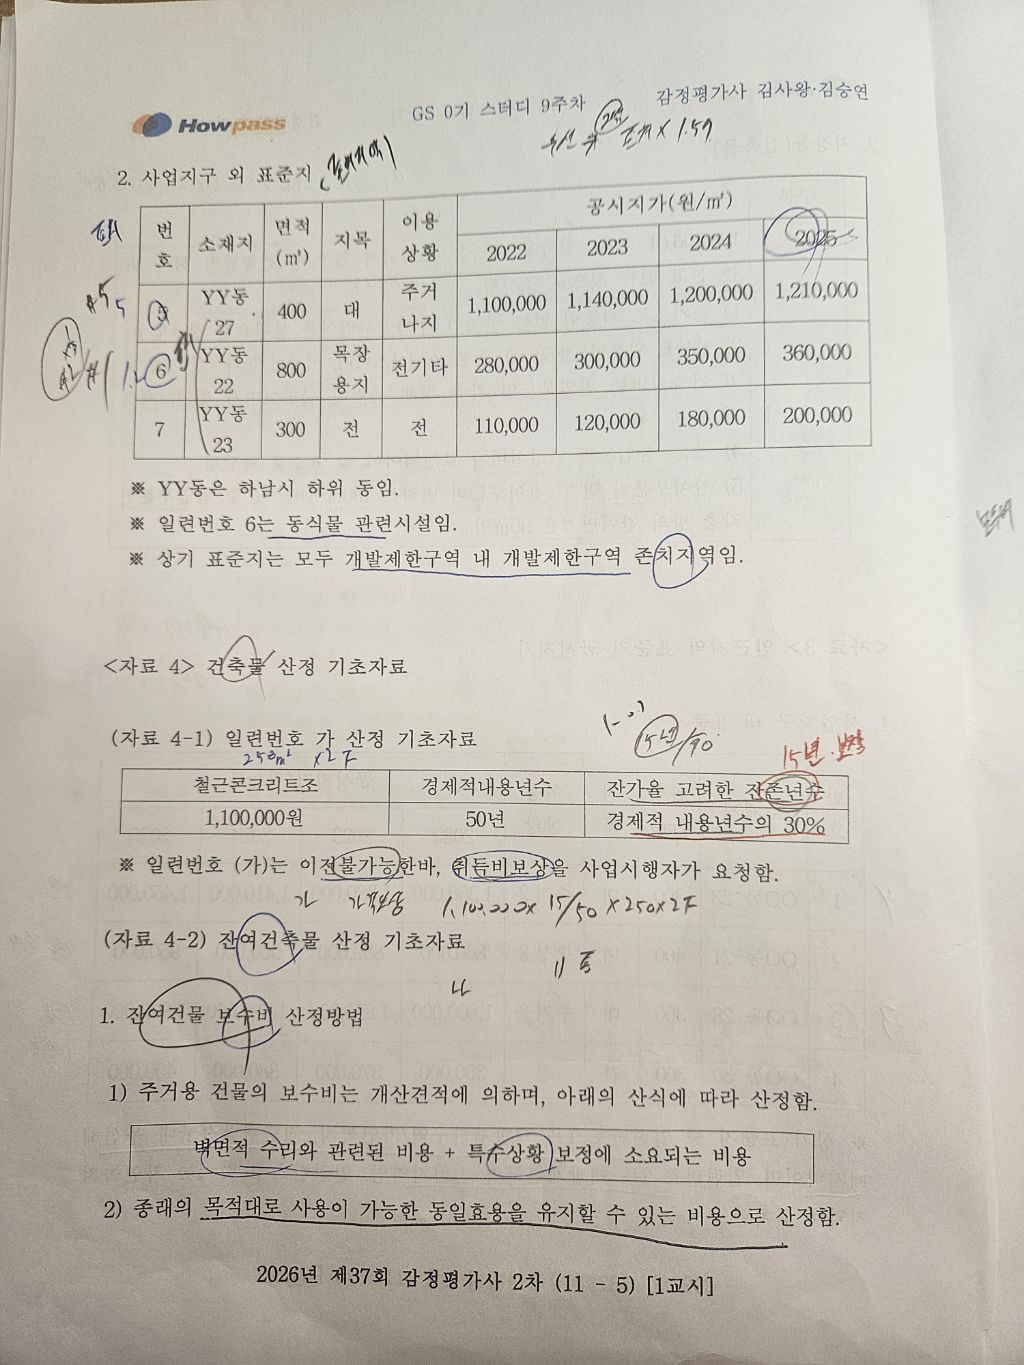 Howpass
GS 0기 스터디 9주차
감정평가사 김사왕·김승연
표준지 × 1.59
2. 사업지구 외 표준지
번호 소재지 면적(㎡) 지목 이용상황 공시지가(원/㎡)
2022 2023 2024 2025
5 YY동 27 400 대 주거나지 1,100,000 1,140,000 1,200,000 1,210,000
6 YY동 22 800 목장용지 전기타 280,000 300,000 350,000 360,000
7 YY동 23 300 전 전 110,000 120,000 180,000 200,000
#5 5
※ YY동은 하남시 하위 동임.
※ 일련번호 6는 동식물 관련시설임.
※ 상기 표준지는 모두 개발제한구역 내 개발제한구역 존치지역임.
<자료 4> 건축물 산정 기초자료
(자료 4-1) 일련번호 가 산정 기초자료
250㎡ ×2F
15년
철근콘크리트조 경제적내용년수 잔가율 고려한 잔존년수
1,100,000원 50년 경제적 내용년수의 30%
※ 일련번호 (가)는 이전불가능한바, 취득비보상을 사업시행자가 요청함.
가 1,100,000× 15/50 ×250×2F
(자료 4-2) 잔여건축물 산정 기초자료
나
1. 잔여건물 보수비 산정방법
1) 주거용 건물의 보수비는 개산견적에 의하며, 아래의 산식에 따라 산정함.
벽면적 수리와 관련된 비용 + 특수상황 보정에 소요되는 비용
2) 종래의 목적대로 사용이 가능한 동일효용을 유지할 수 있는 비용으로 산정함.
2026년 제37회 감정평가사 2차 (11 - 5) [1교시]